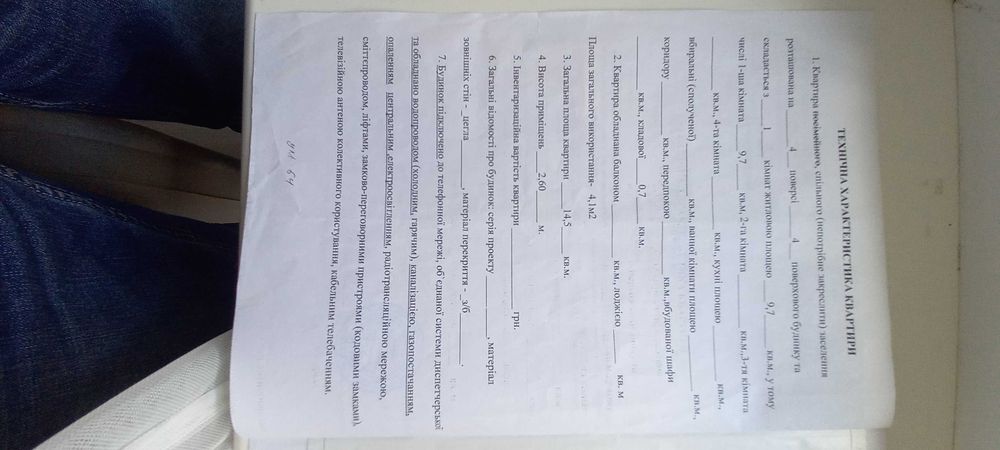 ТЕХНІЧНА ХАРАКТЕРИСТИКА КВАРТИРИ
1. Квартира посімейного, спільного (непотрібне закреслити) заселення
розташована на ______4____ поверсі ______4____ поверхового будинку та
складається з ____1______ кімнат житловою площею ___9,7_____ кв.м., у тому
числі 1-ша кімната ___9,7_____ кв.м, 2-га кімната ________ кв.м.,3-тя кімната
________ кв.м., 4-та кімната ________ кв.м., кухні площею ________ кв.м.,
вбиральні (сполученої)________ кв.м., ванної кімнати площею ________ кв.м.,
коридору ________ кв.м, передпокою ________ кв.м.,вбудованої шафи
________ кв.м., кладової ___0,7_____ кв.м.
2. Квартира обладнана балконом ________ кв.м., лоджією________ кв. м
Площа загального використання- 4,1м2
3. Загальна площа квартири ___14,5_____ кв.м.
4. Висота приміщень ___2,60_____ м.
5. Інвентаризаційна вартість квартири ____________ грн.
6. Загальні відомості про будинок: серія проекту ________, матеріал
зовнішніх стін - _цегла________, матеріал перекриття - _з/б________.
7. Будинок підключено до телефонної мережі, об'єднаної системи диспетчерської
та обладнано водопроводом (холодним, гарячим), каналізацією, газопостачанням,
опаленням центральним ,електроосвітленням, радіотрансляційною мережою,
сміттєпроводом, ліфтами, замково-переговорними пристроями (кодовими замками),
телевізійною антеною колективного користування, кабельним телебаченням.